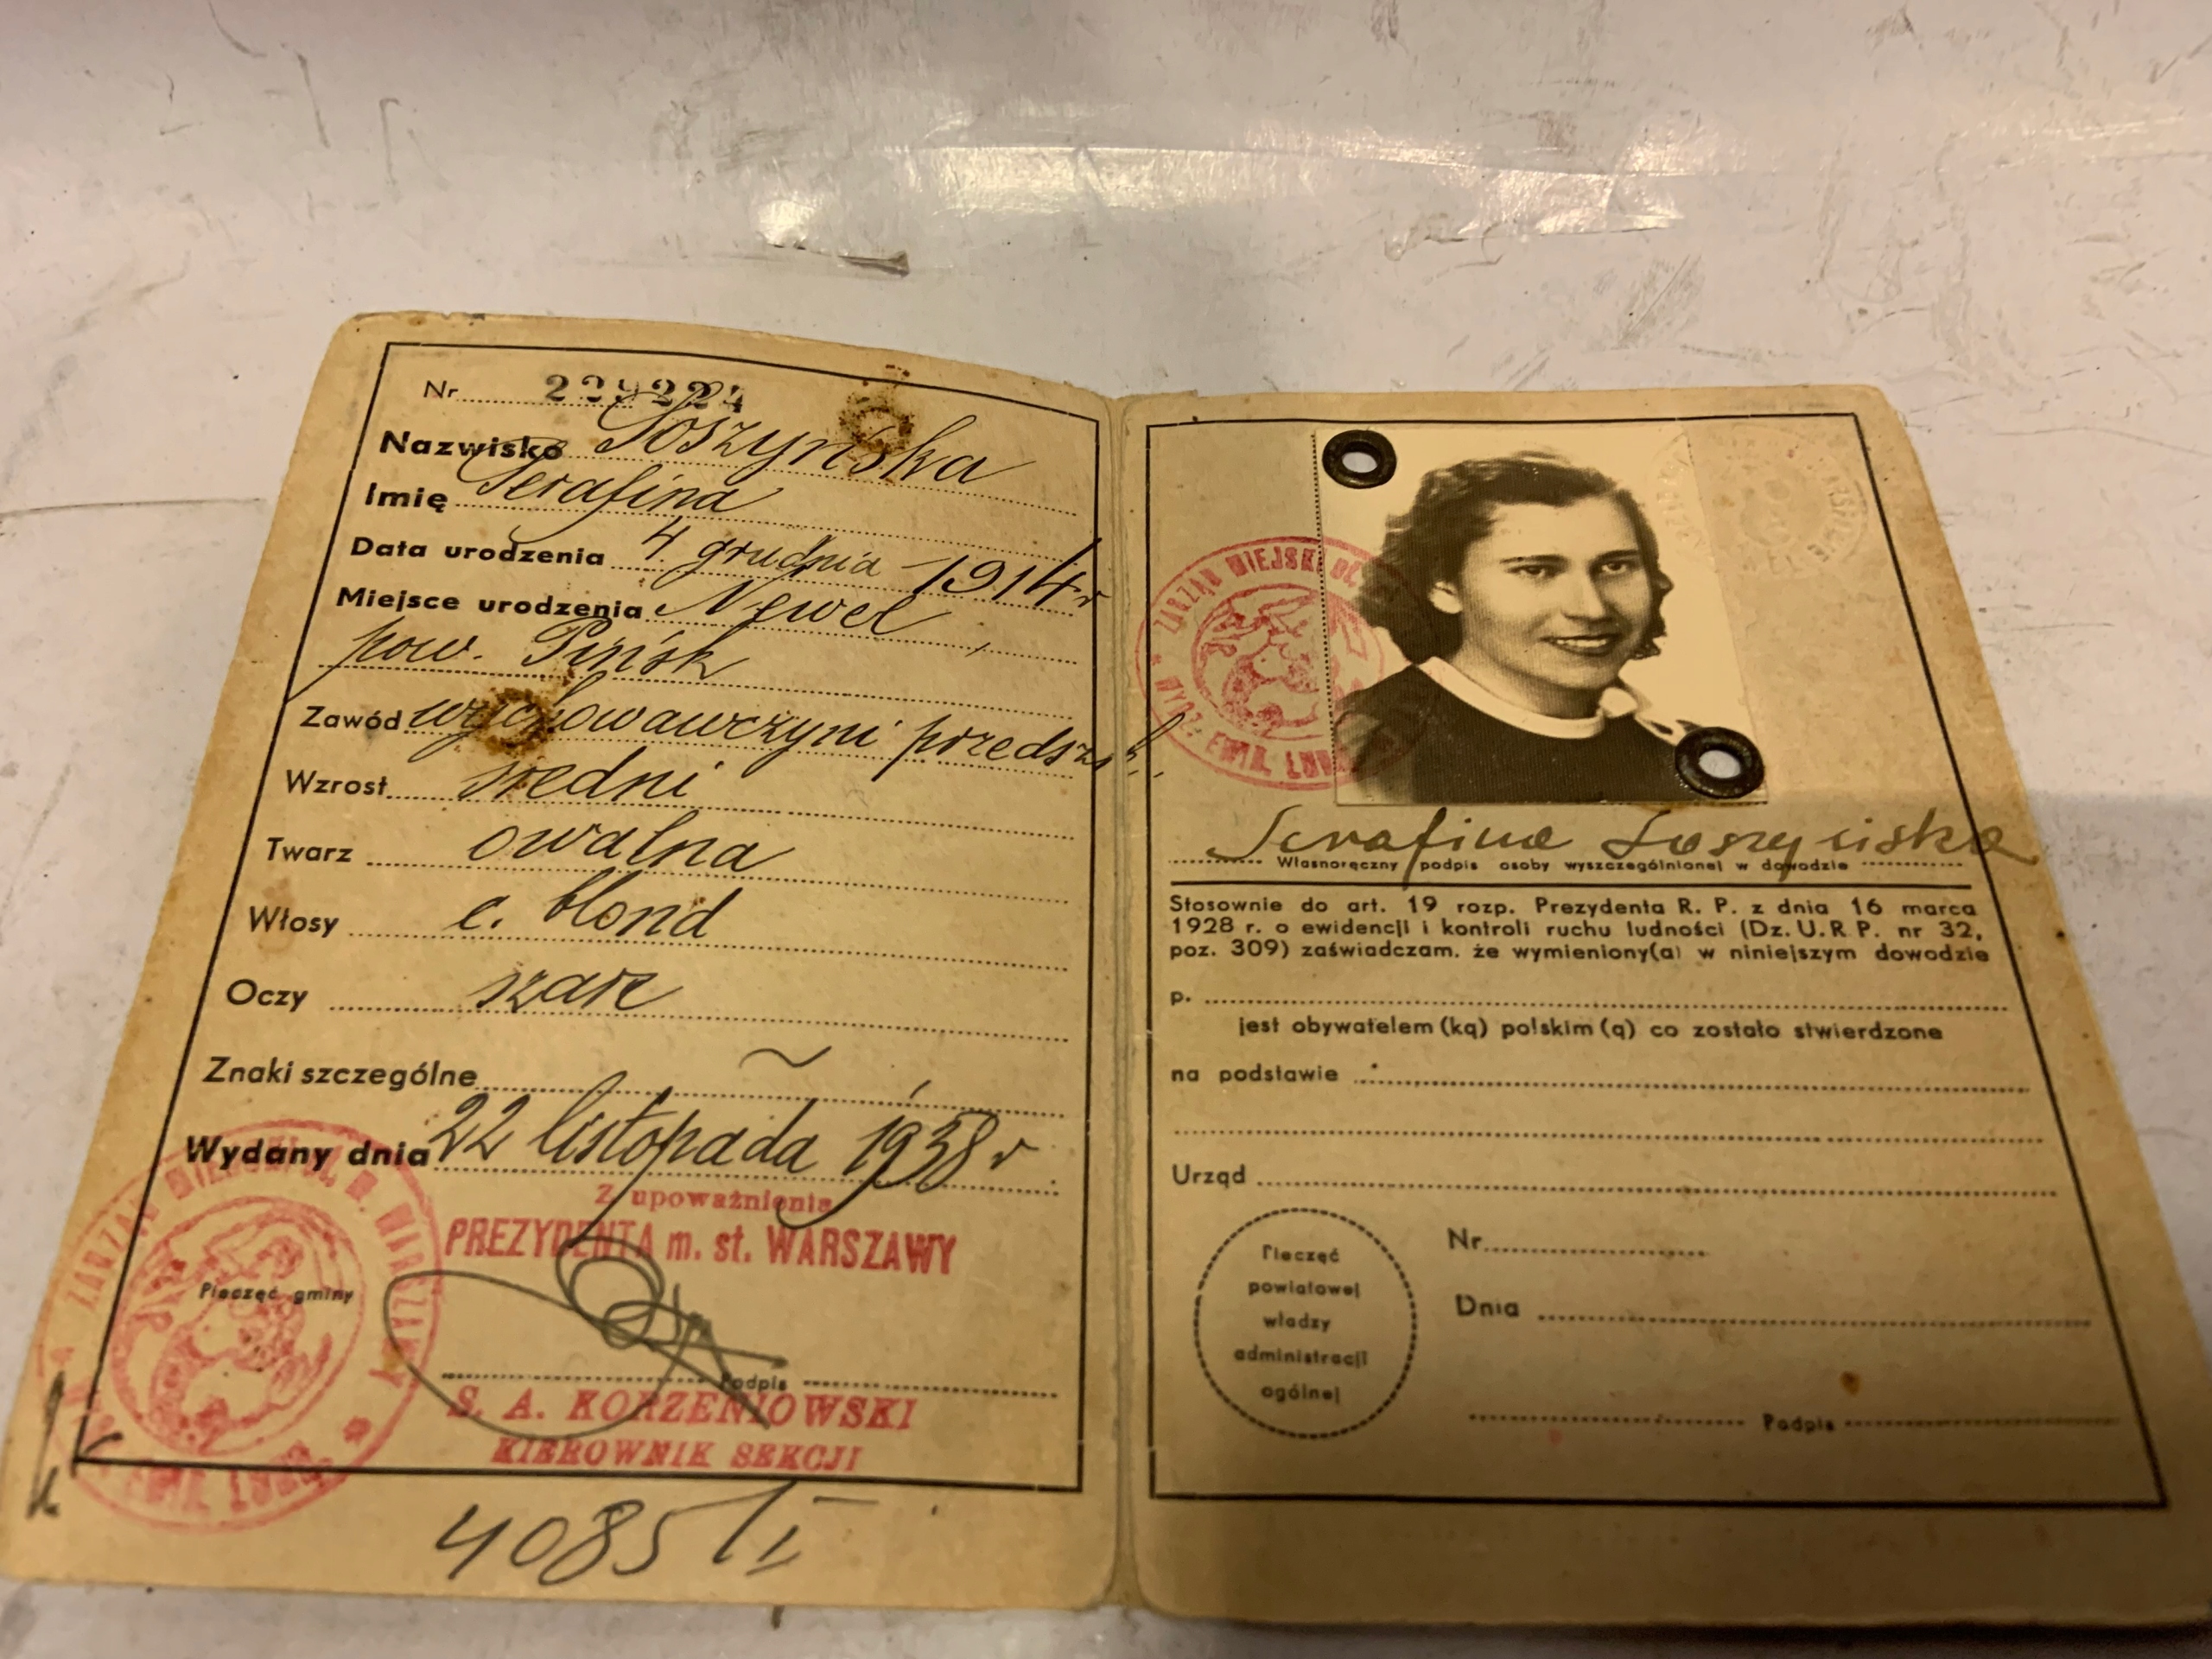 Nr 229224
Nazwisko Soszyńska
Imię Serafina
Data urodzenia 4 grudnia 1914 r
Miejsce urodzenia Newel,
pow. Pińsk
Zawód wychowawczyni przedszk.
Wzrost średni
Twarz owalna
Włosy c. blond
Oczy szare
Znaki szczególne ~
Wydany dnia 22 listopada 1938 r.
Z upoważnienia
PREZYDENTA m. st. WARSZAWY
Pieczęć gminy
Podpis
S. A. KORZENIOWSKI
KIEROWNIK SEKCJI
4085
ZARZĄD MIEJSKI M. WARSZAWY
ZARZĄD MIEJSKI
WYDZ. EWID. LUDN.
Serafina Soszyńska
Własnoręczny podpis osoby wyszczególnionej w dowodzie
Stosownie do art. 19 rozp. Prezydenta R. P. z dnia 16 marca
1928 r. o ewidencji i kontroli ruchu ludności (Dz. U. R. P. nr 32,
poz. 309) zaświadczam, że wymieniony(a) w niniejszym dowodzie
p.
jest obywatelem (ką) polskim (ą) co zostało stwierdzone
na podstawie
Urząd
Pieczęć
powiatowej
władzy
administracji
ogólnej
Nr
Dnia
Podpis